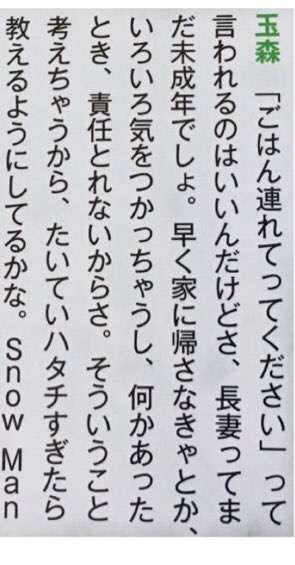 玉森　「ごはん連れてってください」って
言われるのはいいんだけどさ、長妻ってま
だ未成年でしょ。早く家に帰さなきゃとか、
いろいろ気をつかっちゃうし、何かあった
とき、責任とれないからさ。そういうこと
考えちゃうから、たいていハタチすぎたら
教えるようにしてるかな。Snow Man